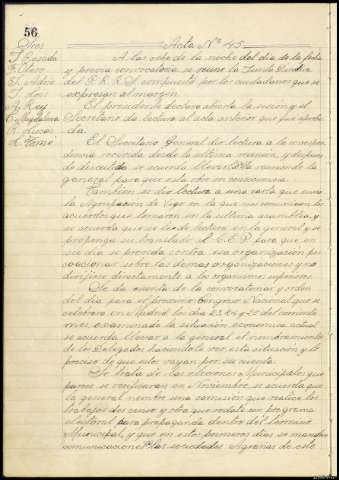 56
Acta Nº 45
A las ocho de la noche del día de la fecha
y previa convocatoria se reune la Junta Directiva
del P. R. R. S. compuesto por los ciudadanos que se
expresan al margen.
El presidente declara abierta la sesión y el
Secretario da lectura al acta anterior que fue aproba
da.
El Secretario General dio lectura a la correspon
dencia recivida desde la ultima reunion, y despues
de discutida se acuerda llevarla a la reunion de la
general para que esta obre en consecuencia.
Tambien se dió lectura a una carta que envia
la Agrupación de Vigo en la que nos comunican los
acuerdos que tomaron en la ultima asamblea, y
se acuerda que se le de lectura en la general y se
proponga su translado al C. E. P. para que en
su dia se proceda contra esa organizacion por
coacionar sobre las demas organizaciones y no
dirigirse directamente a los organismos superiores.
Se da cuenta de la convocatoria y orden
del dia para el proximo Congreso Nacional que se
celebrara en Madrid los dias 23, 24 y 25 del corriente
mes, examinada la situación economica actual
se acuerda llevar a la general el nombramiento
de los Delegados haciendole ver esta situación y lo
preciso de que estos vayan por su cuenta.
Se trata de las elecciones Municipales que
parece se verificaran en Noviembre, se acuerda que
la general nombre una comisión que realice los
trabajos del censo y otra que redacte un programa
electoral para propaganda dentro del termino
Municipal, y que en estos primeros dias se manden
comunicaciones a las sociedades Agrarias de este
J. Posada
A. Rey
C. Magdalena